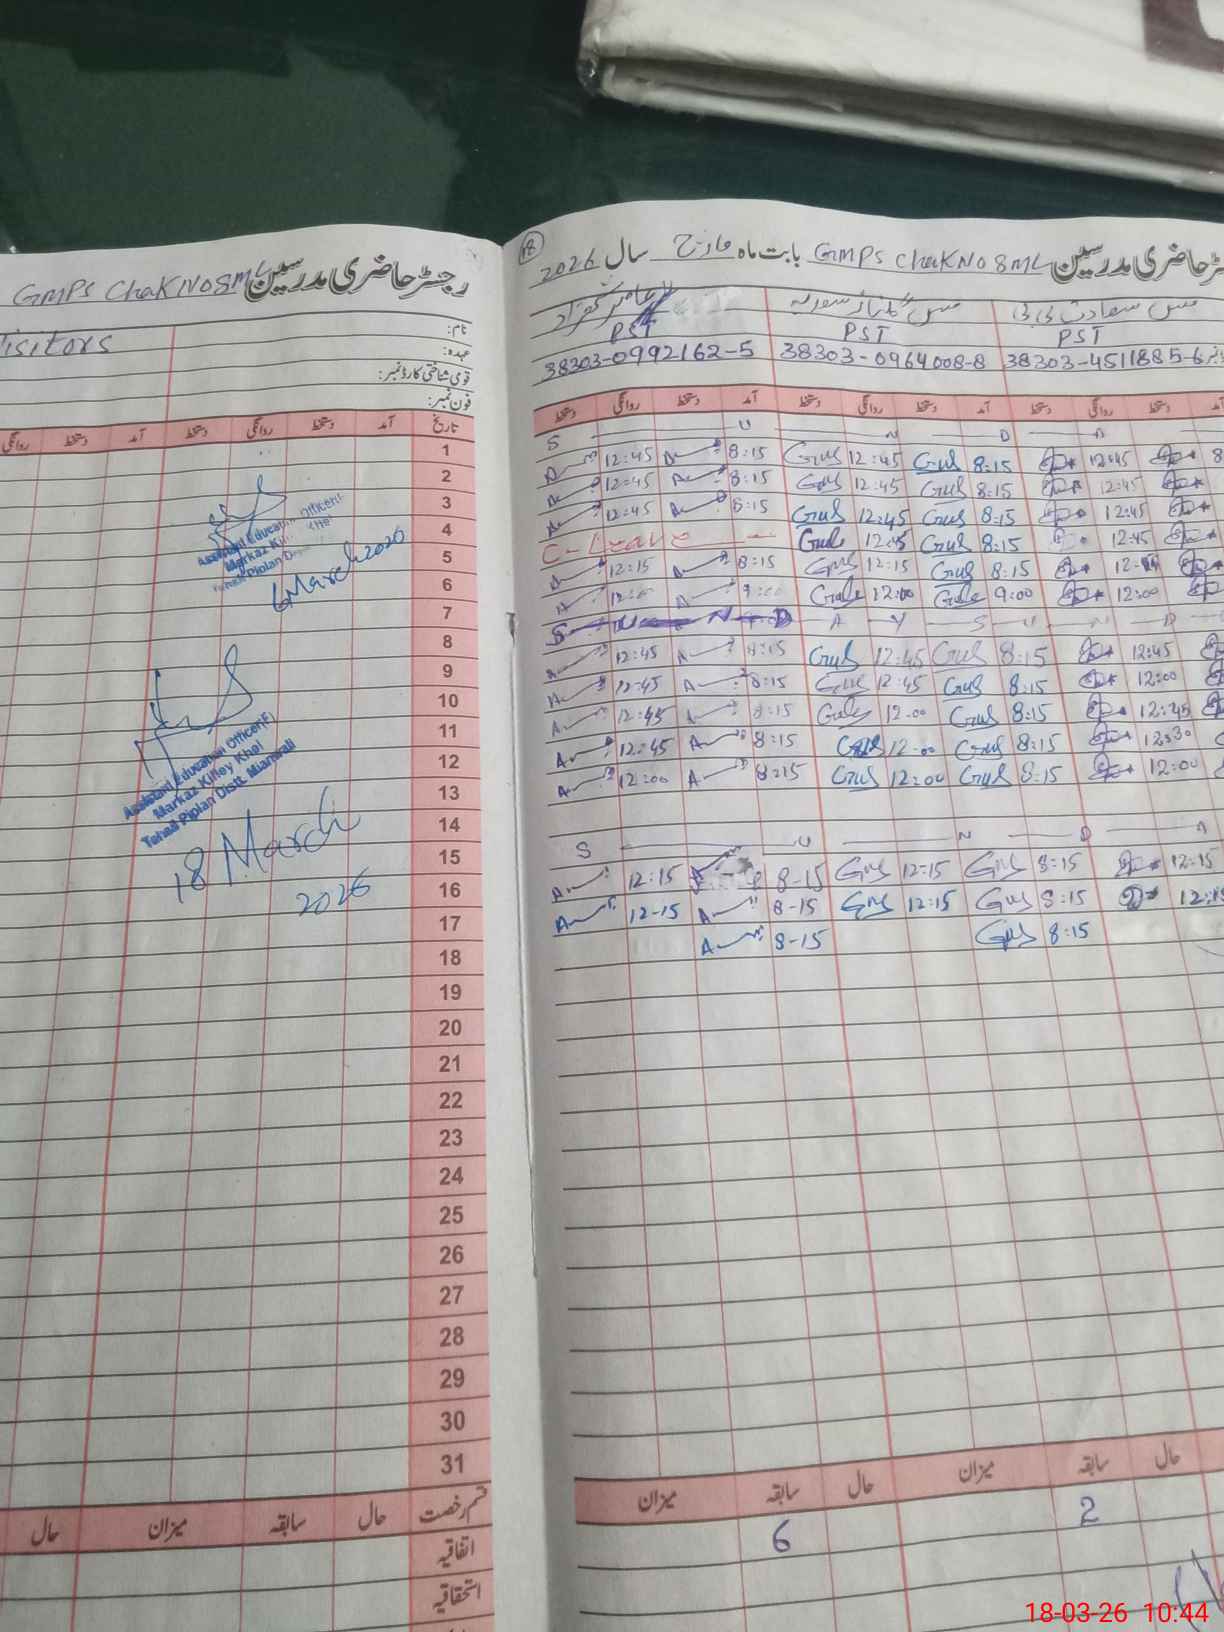 رجسٹر حاضری مدرسین GMPS Chak No 8ML
Visitors
نام:
عہدہ:
قومی شناختی کارڈ نمبر:
فون نمبر:
تاریخ آمد دستخط روانگی دستخط آمد دستخط روانگی
1
2
3
4
5
6
7
8
9
10
11
12
13
14
15
16
17
18
19
20
21
22
23
24
25
26
27
28
29
30
31
Assistant Education Officer
Markaz
Tehsil Piplan
6 March 2026
Assistant Education Officer(F)
Markaz Killey Khel
Tehsil Piplan Distt. Mianwali
18 March
2026
قسم رخصت حال سابقہ میزان حال
اتفاقیہ
استحقاقیہ
18
رجسٹر حاضری مدرسین GMPS Chak No 8ML بابت ماہ مارچ سال 2026
مس سعادت بی بی مس گلناز سعدیہ
PST PST PST
38303-0992162-5 38303-0964008-8 38303-4511885-6
دستخط روانگی دستخط آمد دستخط روانگی دستخط آمد دستخط روانگی دستخط آمد
S U N D A
12:45 8:15 Gul 12:45 Gul 8:15 12:45 8
12:45 8:15 Gul 12:45 Gul 8:15 12:45
12:45 8:15 Gul 12:45 Gul 8:15 12:45
C-Leave Gul 12:45 Gul 8:15 12:45
12:15 8:15 Gul 12:15 Gul 8:15
Gul 12:00 Gul 9:00 12:00
S U N D A Y S U N D
12:45 8:15 Gul 12:45 Gul 8:15 12:45
12:45 8:15 Gul 12:45 Gul 8:15 12:00
12:45 8:15 Gul 12-00 Gul 8:15 12:45
12:45 8:15 Gul 12-00 Gul 8:15 12:30
12:00 8:15 Gul 12:00 Gul 8:15 12:00
S U N D A
12:15 8-15 Gul 12:15 Gul 8:15 12:15
12-15 8-15 Gul 12:15 Gul 8:15
8-15 Gul 8:15
میزان سابقہ حال میزان سابقہ حال
6 2
18-03-26 10:44